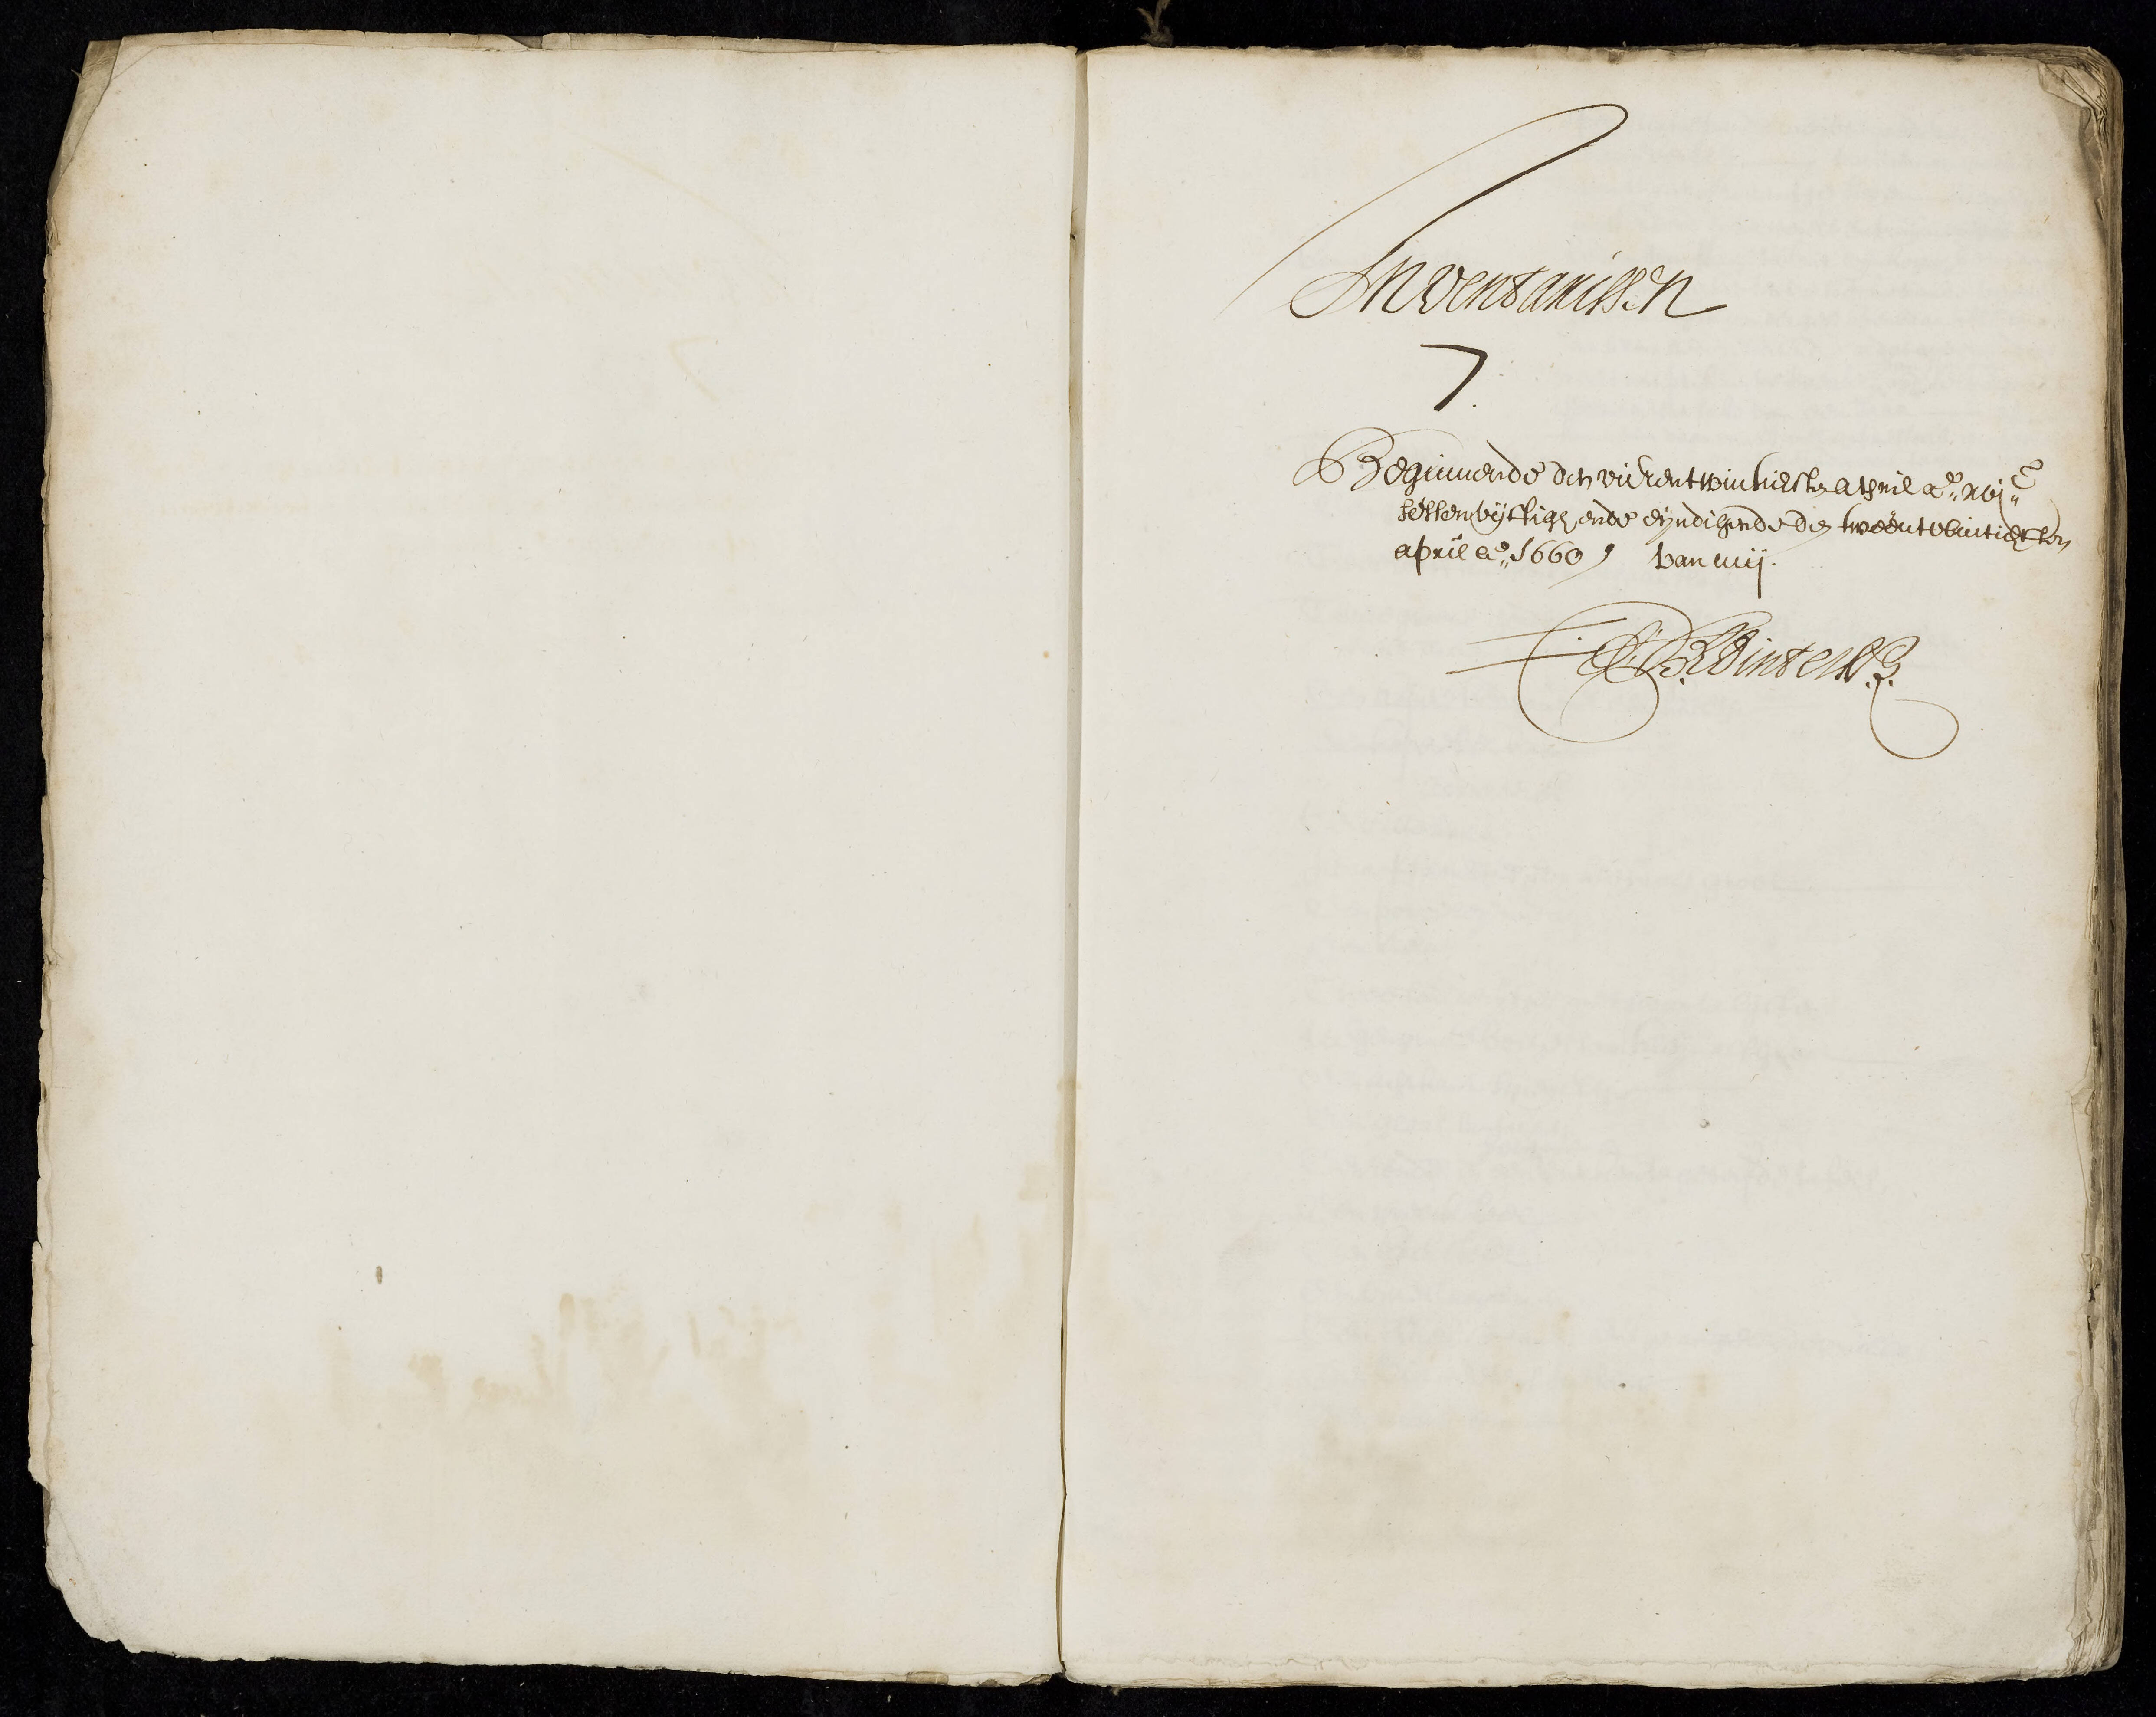 Inventarissen
7.
Beginnende den vierentwintichsten april a.o xvj.c
sessenvijftigh, ende eyndigende den tweentwintichsten
april a.o 1660, van mij.